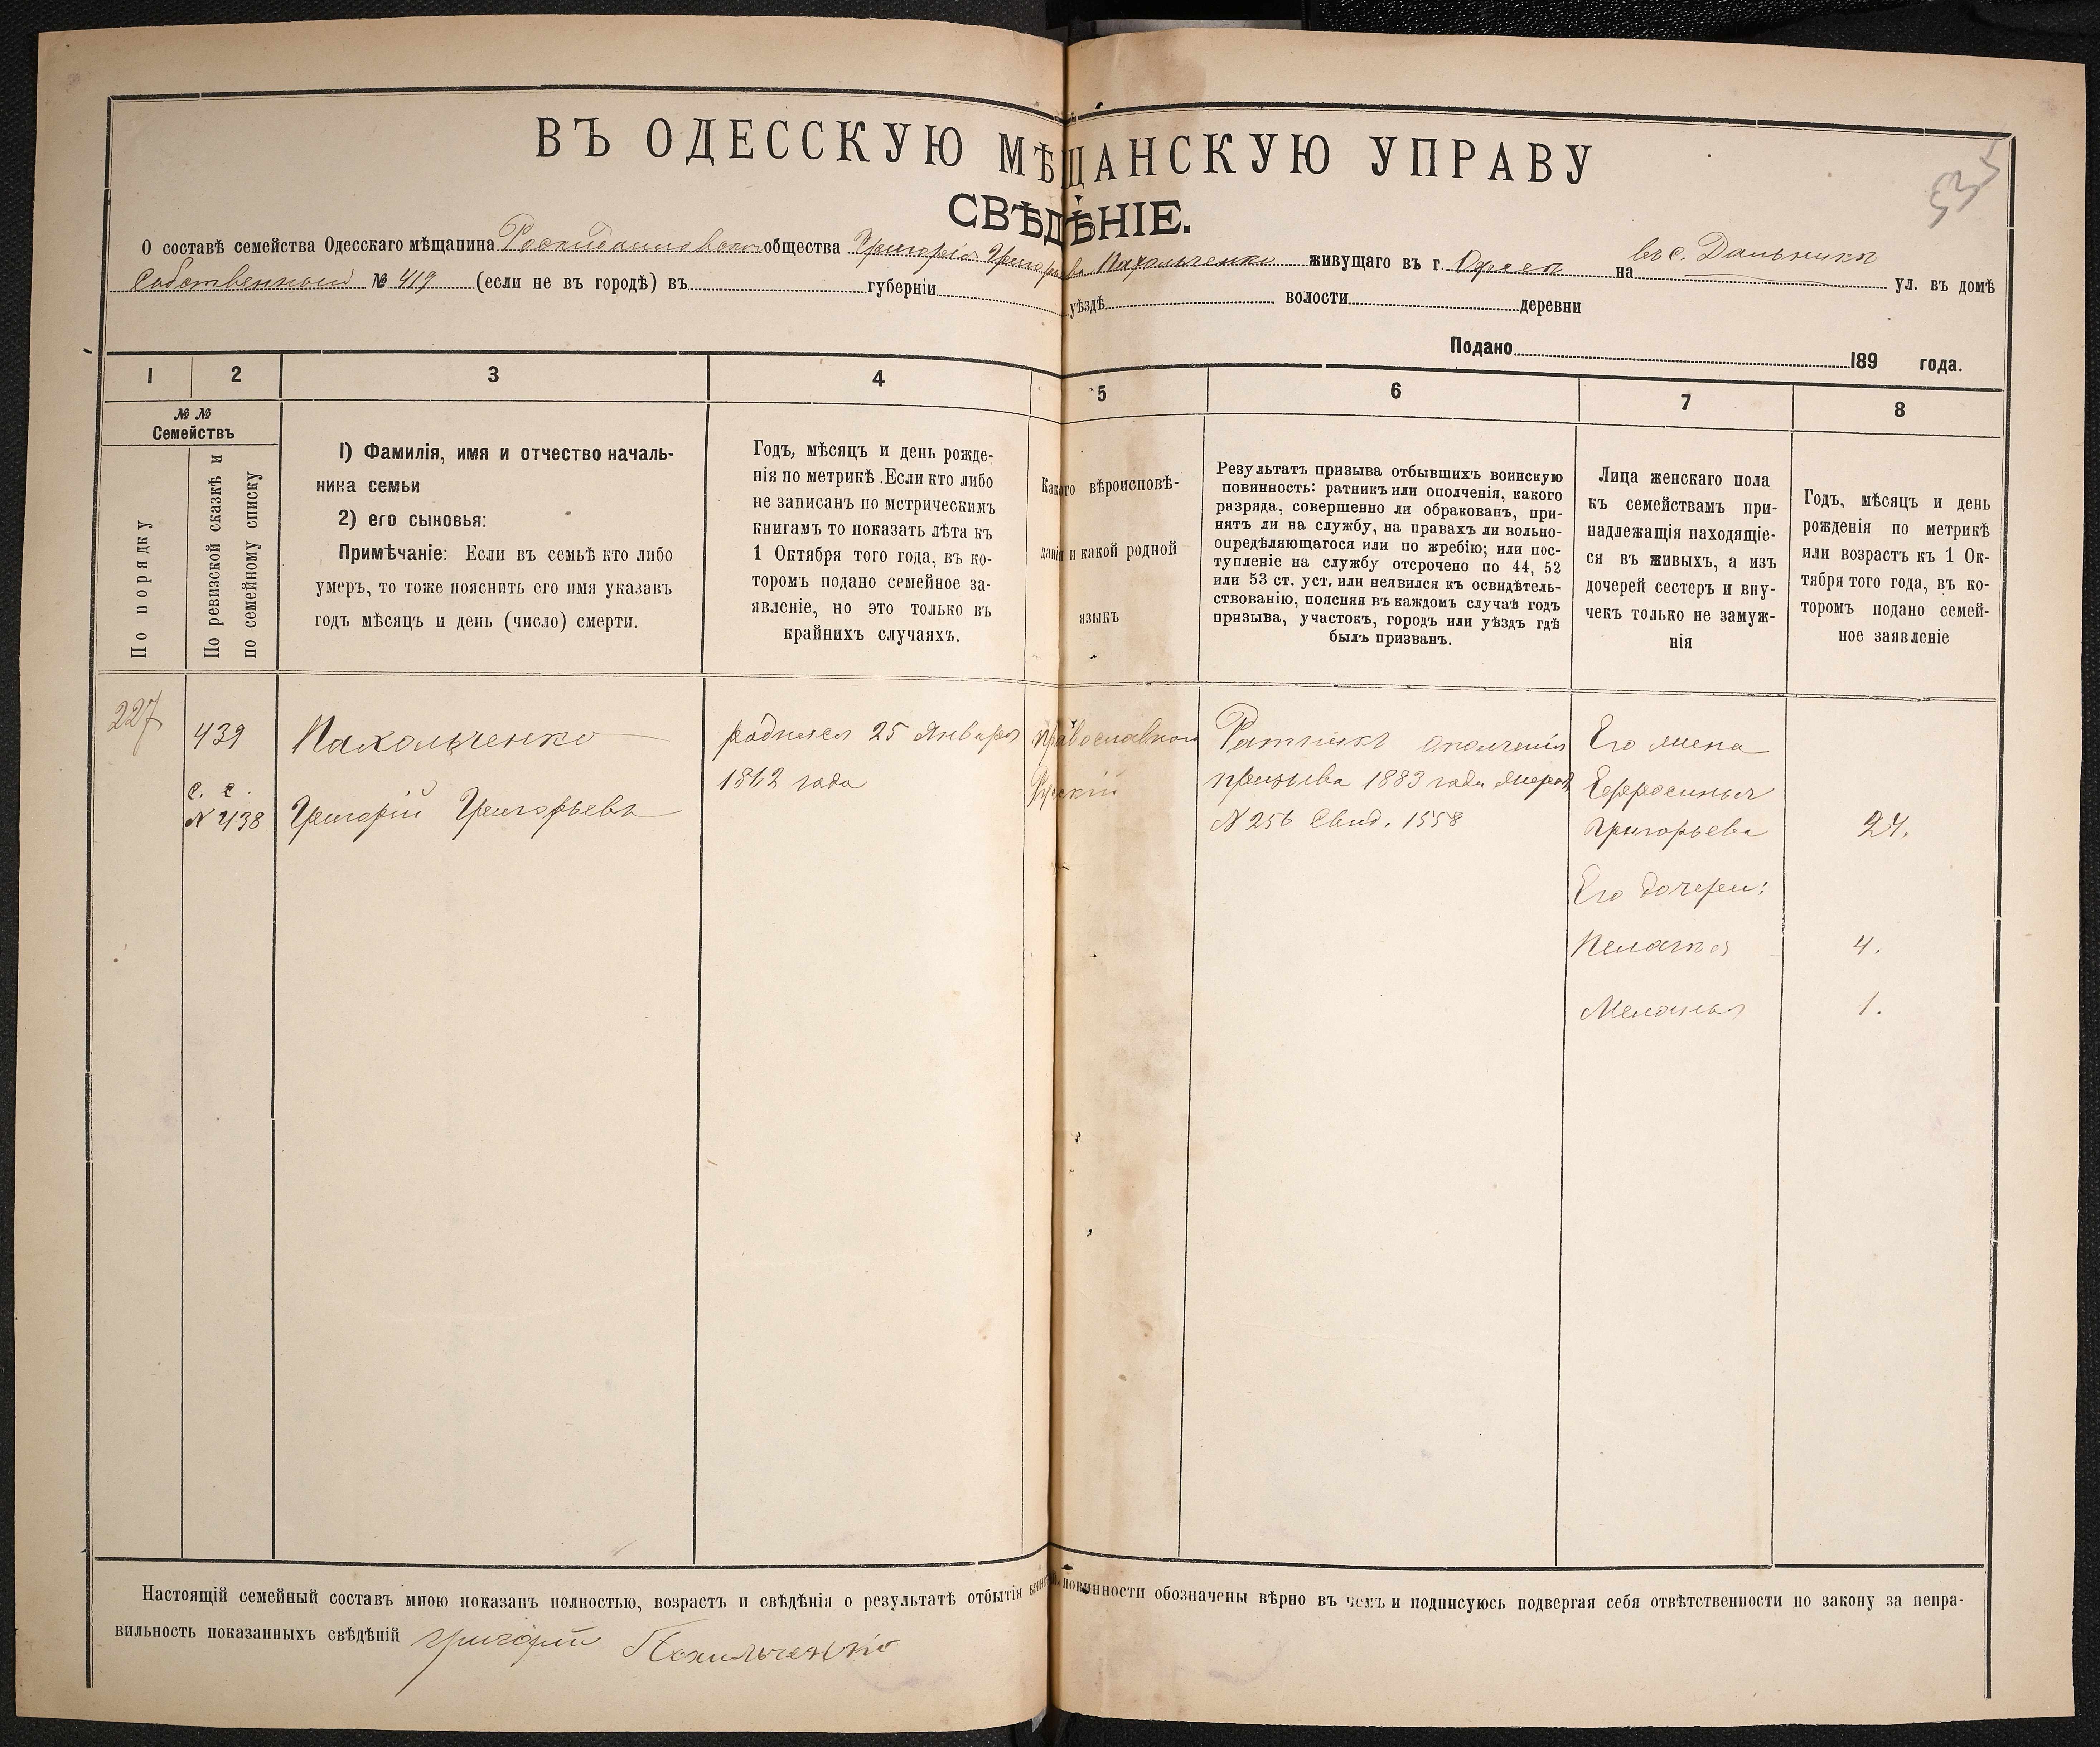 ВЪ ОДЕССКУЮ МѢЩАНСКУЮ УПРАВУ
533
СВѢДѢНІЕ.
О составѣ семейства Одесскаго мѣщанина общества Григорія Григорьева Пахольченко живущаго въ г. Одессѣ на въ с. Дальникъ ул. въ домѣ
Собственный № 419 (если не въ городѣ) въ губерніи уѣздѣ волости деревни
Подано 189 года.
1 2 3 4 5 6 7 8
№ №
Семействъ
По порядку
По ревизской сказкѣ и
по семейному списку
1) Фамилія, имя и отчество началь-
ника семьи
2) его сыновья:
Примѣчаніе: Если въ семьѣ кто либо
умеръ, то тоже пояснить его имя указавъ
годъ мѣсяцъ и день (число) смерти.
Годъ, мѣсяцъ и день рожде-
нія по метрикѣ. Если кто либо
не записанъ по метрическимъ
книгамъ то показать лѣта къ
1 Октября того года, въ ко-
торомъ подано семейное за-
явленіе, но это только въ
крайнихъ случаяхъ.
Какого вѣроисповѣ-
данія и какой родной
языкъ
Результатъ призыва отбывшихъ воинскую
повинность: ратникъ или ополченія, какого
разряда, совершенно ли обракованъ, при-
нятъ ли на службу, на правахъ ли вольно-
опредѣляющагося или по жребію; или пос-
тупленіе на службу отсрочено по 44, 52
или 53 ст. уст, или неявился къ освидѣтель-
ствованію, поясняя въ каждомъ случаѣ годъ
призыва, участокъ, городъ или уѣздъ гдѣ
былъ призванъ.
Лица женскаго пола
къ семействамъ при-
надлежащія находящіе-
ся въ живыхъ, а изъ
дочерей сестеръ и вну-
чекъ только не замуж-
нія
Годъ, мѣсяцъ и день
рожденія по метрикѣ
или возрастъ къ 1 Ок-
тября того года, въ ко-
торомъ подано семей-
ное заявленіе
227
439
с. с.
№ 438
Пахольченко
Григорій Григорьевъ
родился 25 Января
1862 года
православной
Русскій
Ратникъ ополченія
призыва 1883 года жереб.
№ 256 Свид. 1558
Его жена
Ефросинья
Григорьева 24.
Его дочери:
Пелагея 4.
Меланья 1.
Настоящій семейный составъ мною показанъ полностью, возрастъ и свѣдѣнія о результатѣ отбытія воинской повинности обозначены вѣрно въ чемъ и подписуюсь подвергая себя отвѣтственности по закону за непра-
вильность показанныхъ свѣдѣній Григорій Пахольченко